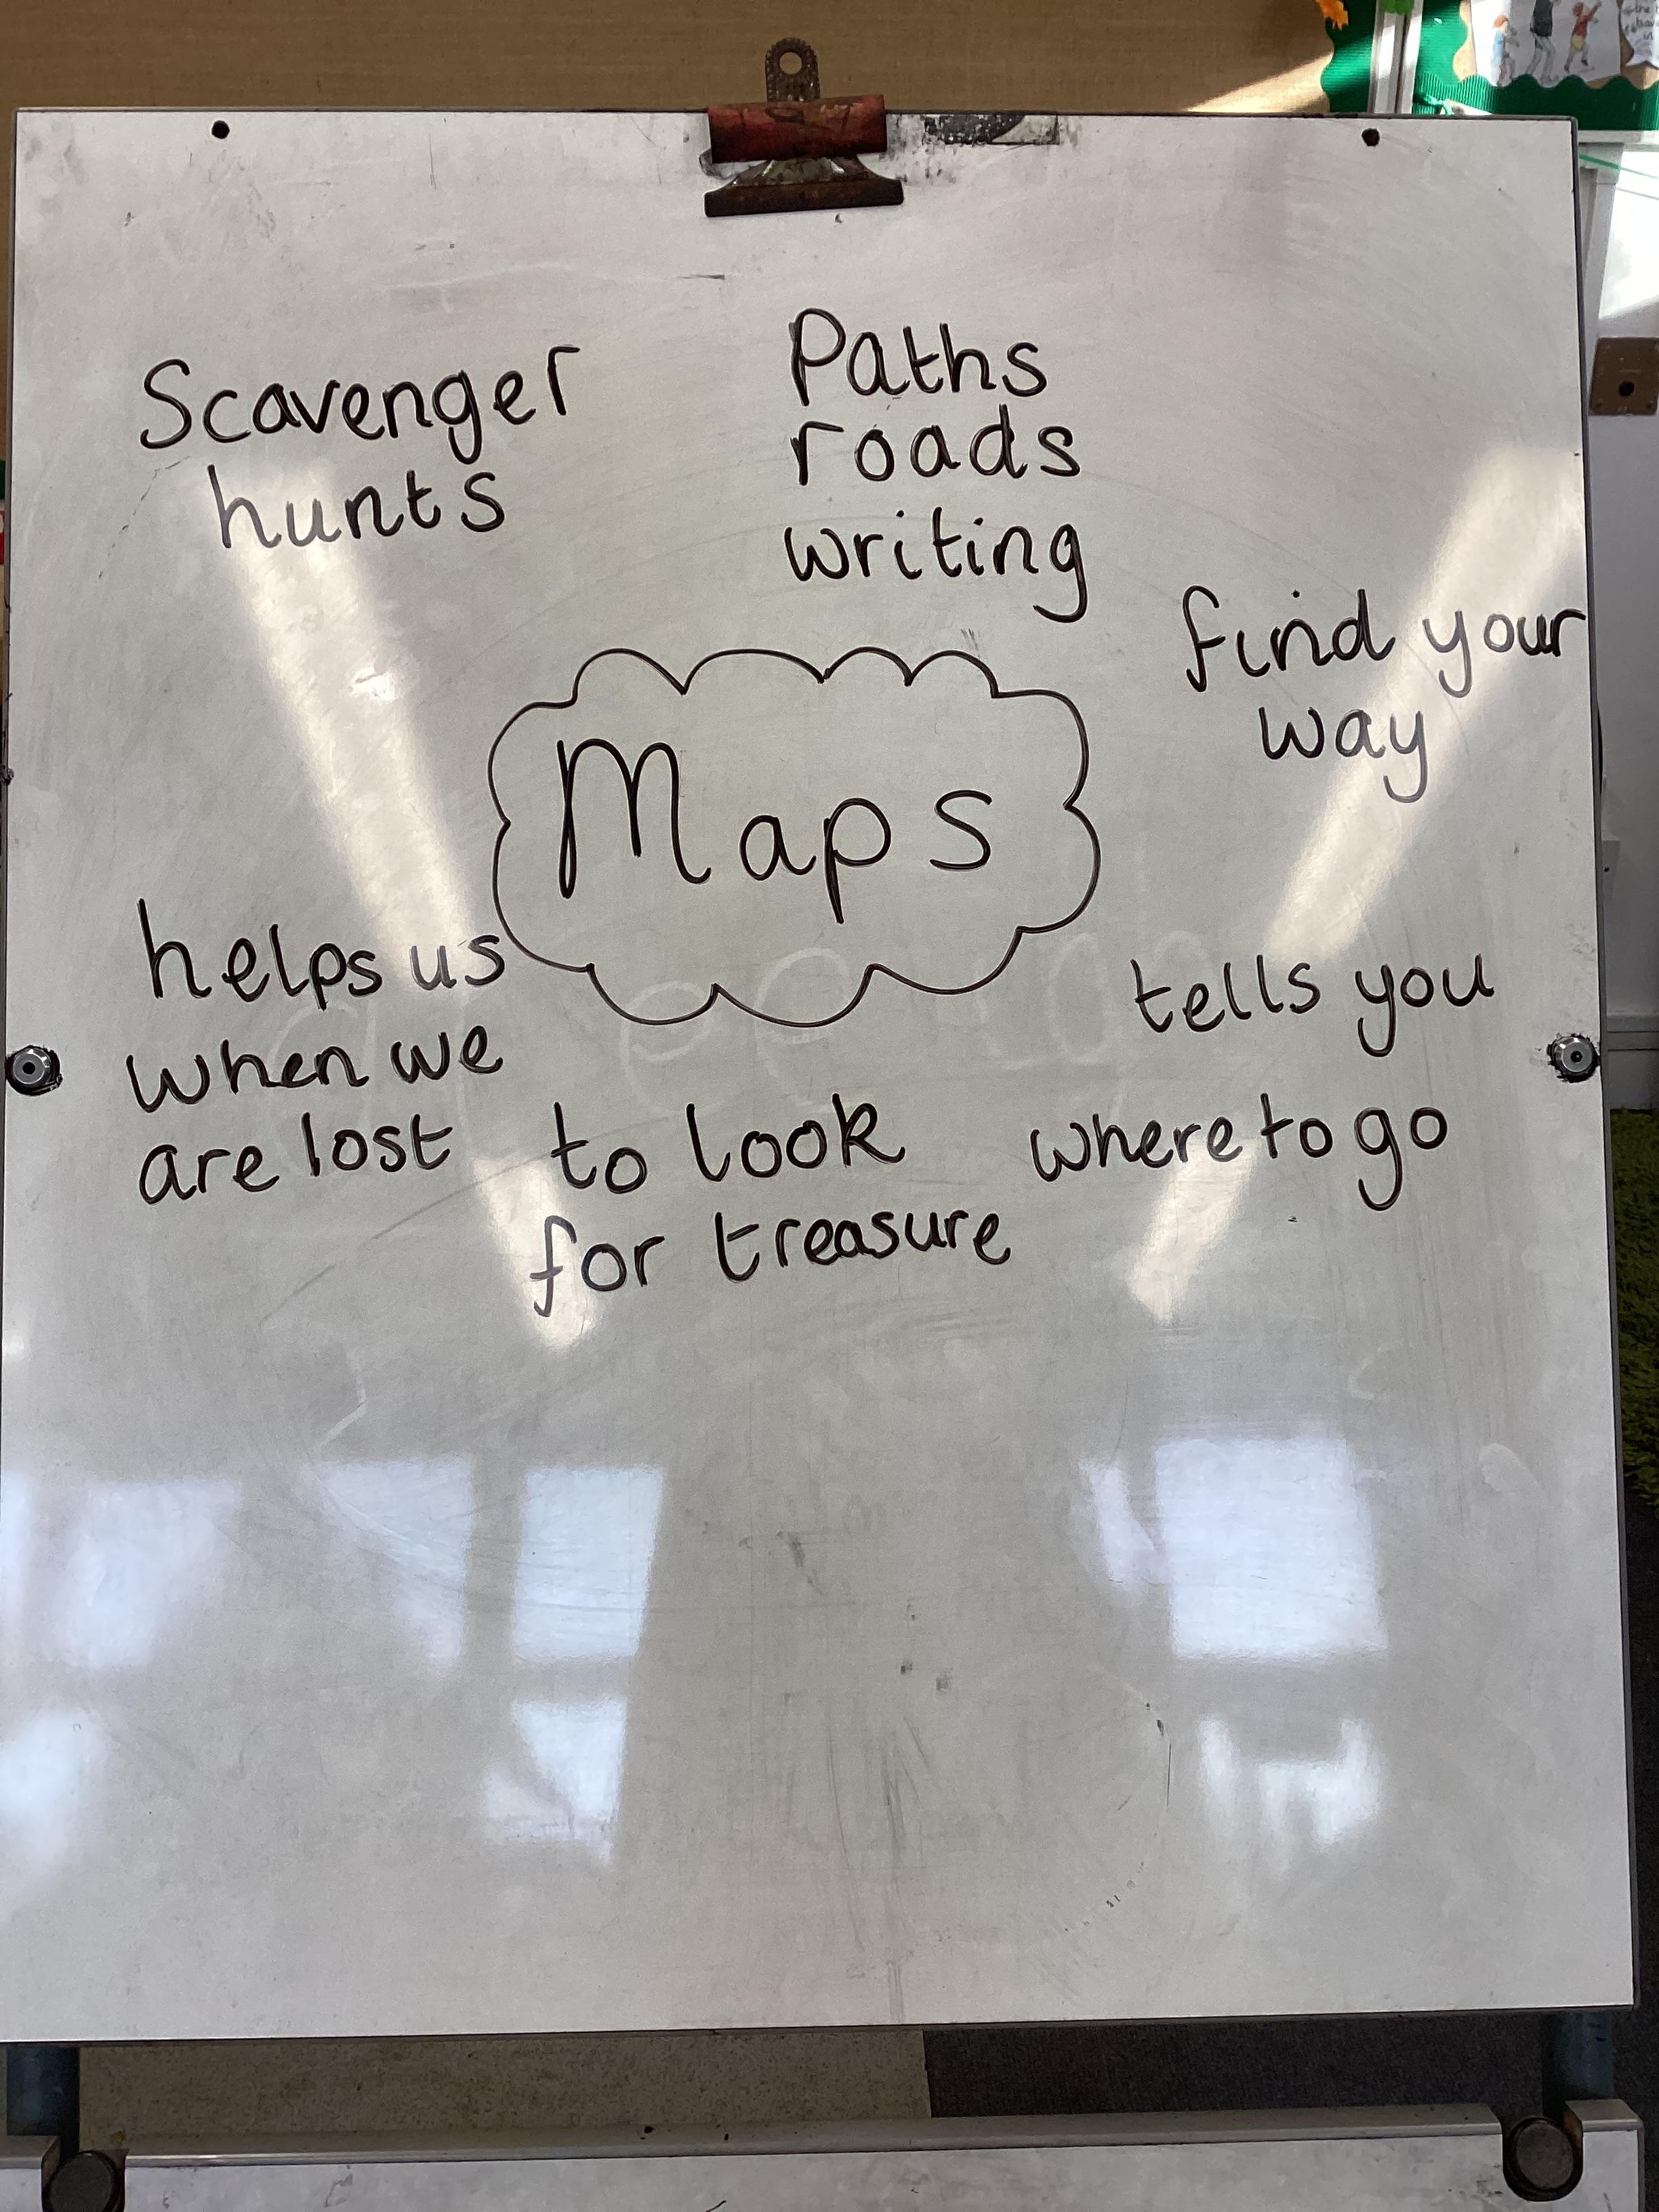 Scavenger
hunts
Paths
roads
writing
find your
way
Maps
helps us
when we
are lost
to look
for treasure
tells you
where to go